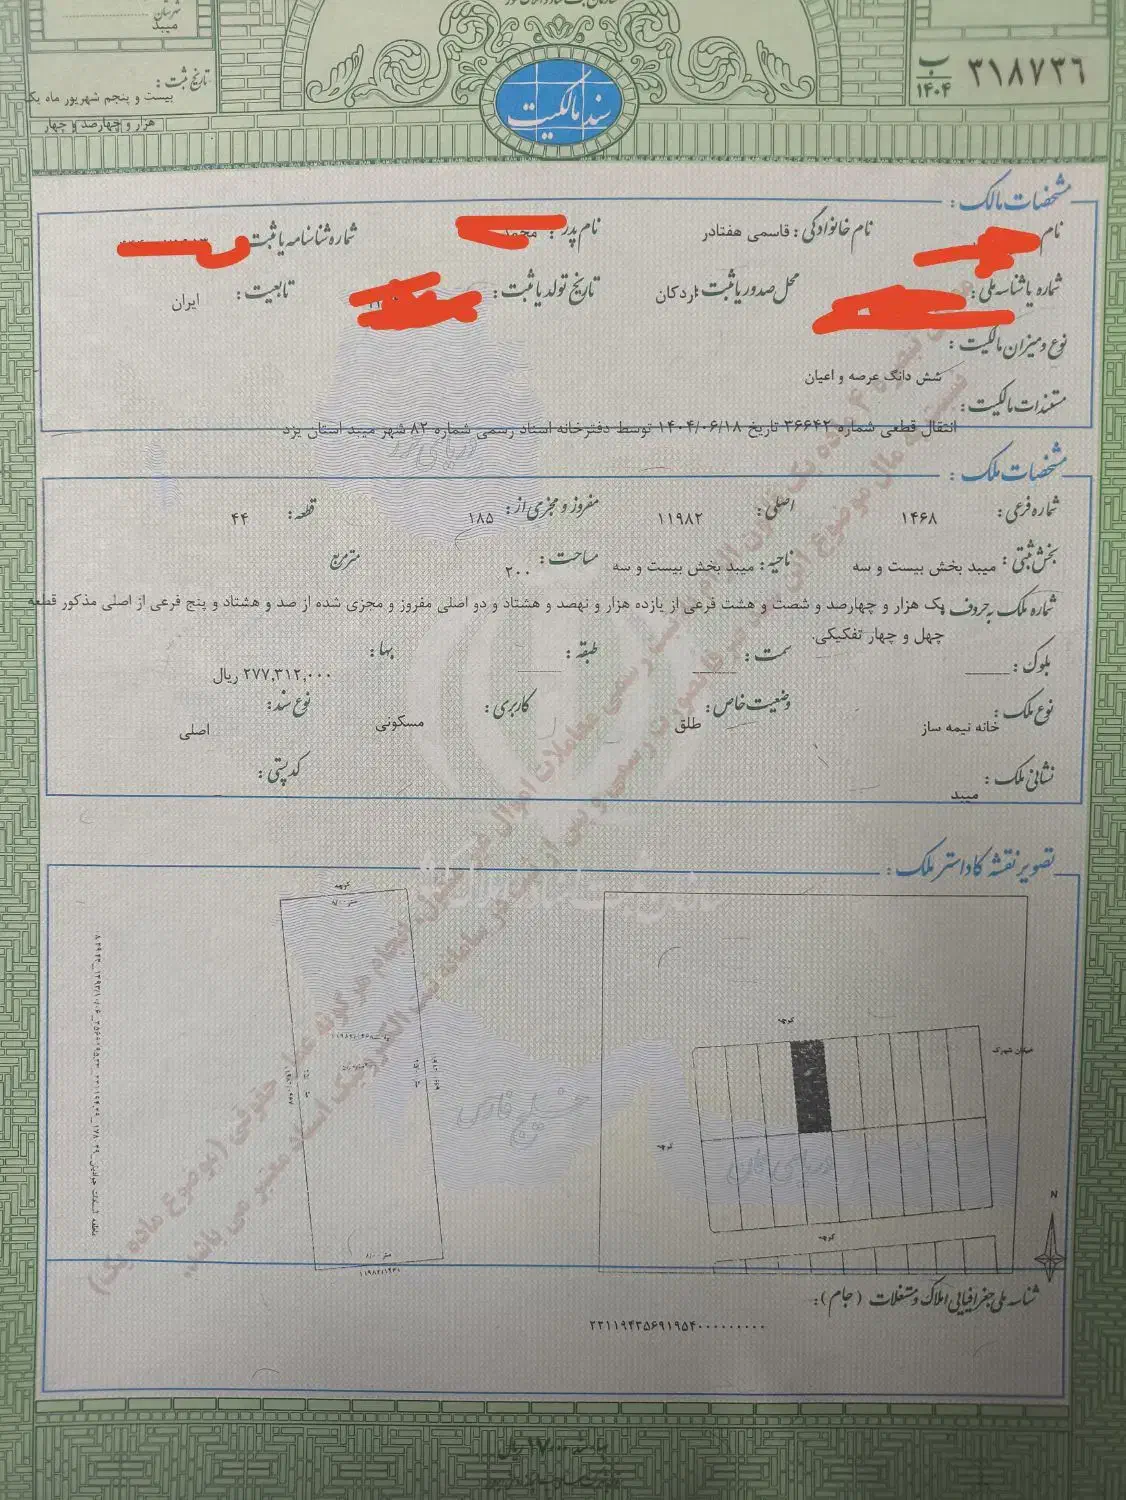 شهرستان
میبد
تاریخ ثبت :
بیست و پنجم شهریور ماه یک
هزار و چهارصد و چهار
سند مالکیت
ب
۱۴۰۴
۳۱۸۷۳۶
مشخصات مالک :
نام
نام خانوادگی : قاسمی هفتادر
نام پدر :
شماره شناسنامه یا ثبت
شماره یا شناسه ملی :
محل صدور یا ثبت : اردکان
تاریخ تولد یا ثبت :
تابعیت : ایران
نوع و میزان مالکیت :
شش دانگ عرصه و اعیان
مستندات مالکیت :
انتقال قطعی شماره ۳۶۶۴۲ تاریخ ۱۴۰۴/۰۶/۱۸ توسط دفترخانه اسناد رسمی شماره ۸۲ شهر میبد استان یزد
مشخصات ملک :
شماره فرعی : ۱۴۶۸
اصلی : ۱۱۹۸۲
مفروز و مجزی از : ۱۸۵
قطعه : ۴۴
بخش ثبتی : میبد بخش بیست و سه
ناحیه : میبد بخش بیست و سه
مساحت : ۲۰۰
مترمربع
شماره ملک به حروف : یک هزار و چهارصد و شصت و هشت فرعی از یازده هزار و نهصد و هشتاد و دو اصلی مفروز و مجزی شده از صد و هشتاد و پنج فرعی از اصلی مذکور قطعه
چهل و چهار تفکیکی.
بلوک :
سمت :
طبقه :
بها : ۲۷۷,۳۱۲,۰۰۰ ریال
نوع ملک : خانه نیمه ساز
وضعیت خاص : طلق
کاربری : مسکونی
نوع سند : اصلی
نشانی ملک : میبد
کد پستی :
تصویر نقشه کاداستر ملک :
کوچه
خیابان شهرک
کوچه
کوچه
N
کوچه
خلیج فارس
دریای عمان
شناسه ملی جغرافیایی املاک و مستغلات (جام) :
۲۲۱۱۹۴۲۵۶۹۱۹۵۴۰۰۰۰۰۰۰۰۰